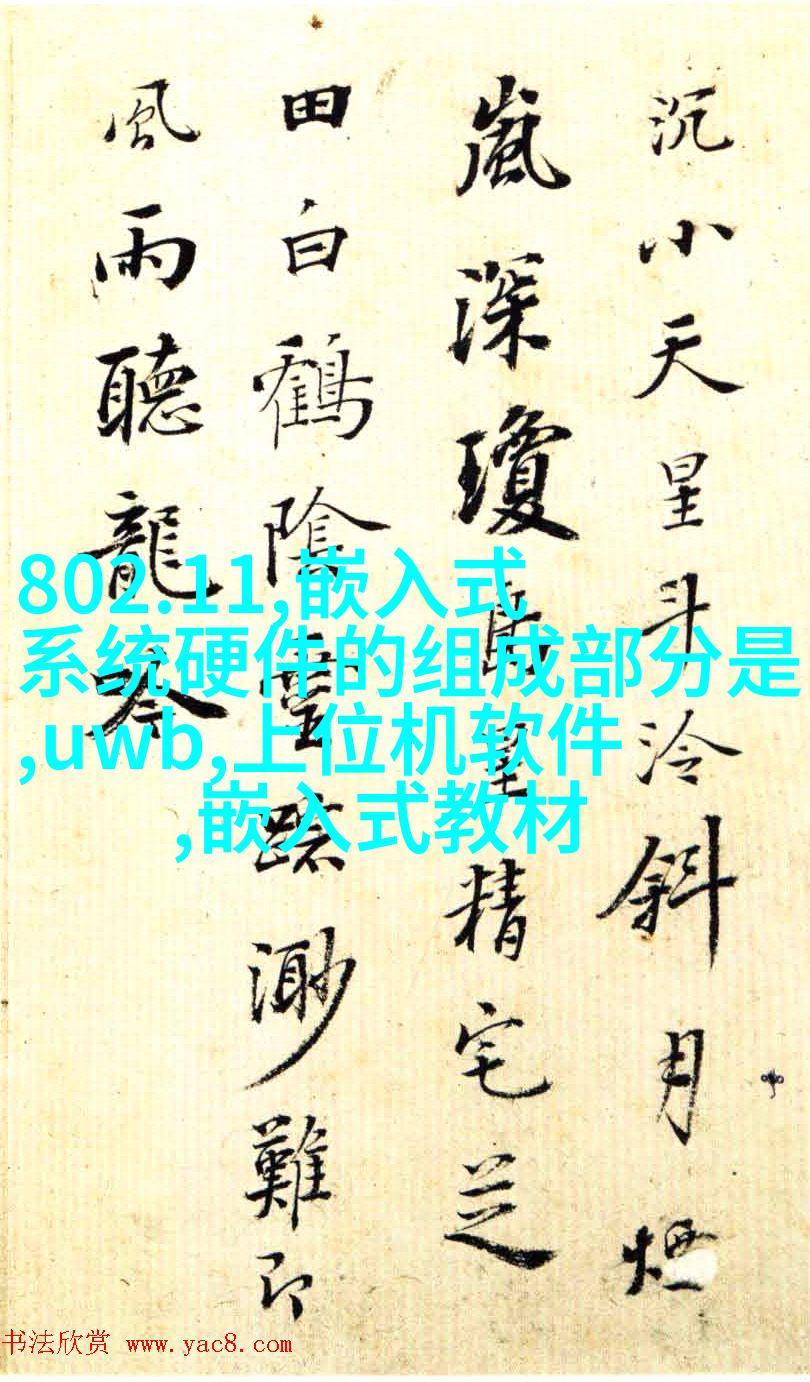 沉小天星斗泠斜月煙
嵐深瓊精宅芝
田白鶴陰靈蹤渺難即
風雨聽龍吟
802.11,嵌入式
系统硬件的组成部分是
,uwb,上位机软件
,嵌入式教材
书法欣赏 www.yac8.com